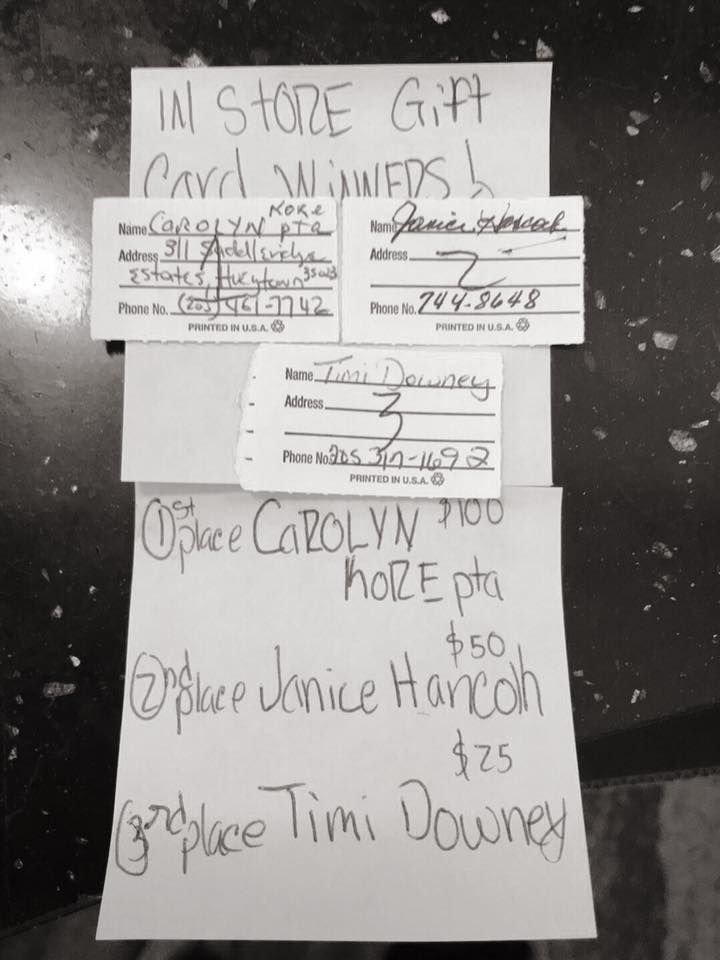 IN STORE Gift
Card WINNERS!
Name CAROLYN KORE pta
Address 311
Estates, Hueytown 35023
Phone No. (205) 461-7742
PRINTED IN U.S.A.
Name Janice
Address
2
Phone No. 744-8648
PRINTED IN U.S.A.
Name Timi Downey
Address
3
Phone No. 205 317-1692
PRINTED IN U.S.A.
1st place CAROLYN $100
KORE pta
$50
2nd place Janice Hancoh
$25
3rd place Timi Downey